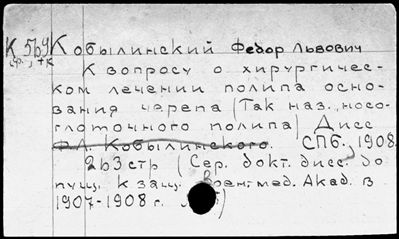 К 569 Кобылинский Федор Львович
ср., +к К вопросу о хирургичес-
ком лечении полипа осно-
вания черепа (Так наз. носо-
глоточного полипа) Дисс
Ф.Л. Кобылинского. СПб., 1908.
263 стр (Сер. докт. дисс. до
пущ. к защ. Воен. мед. Акад. в
1907-1908 г.